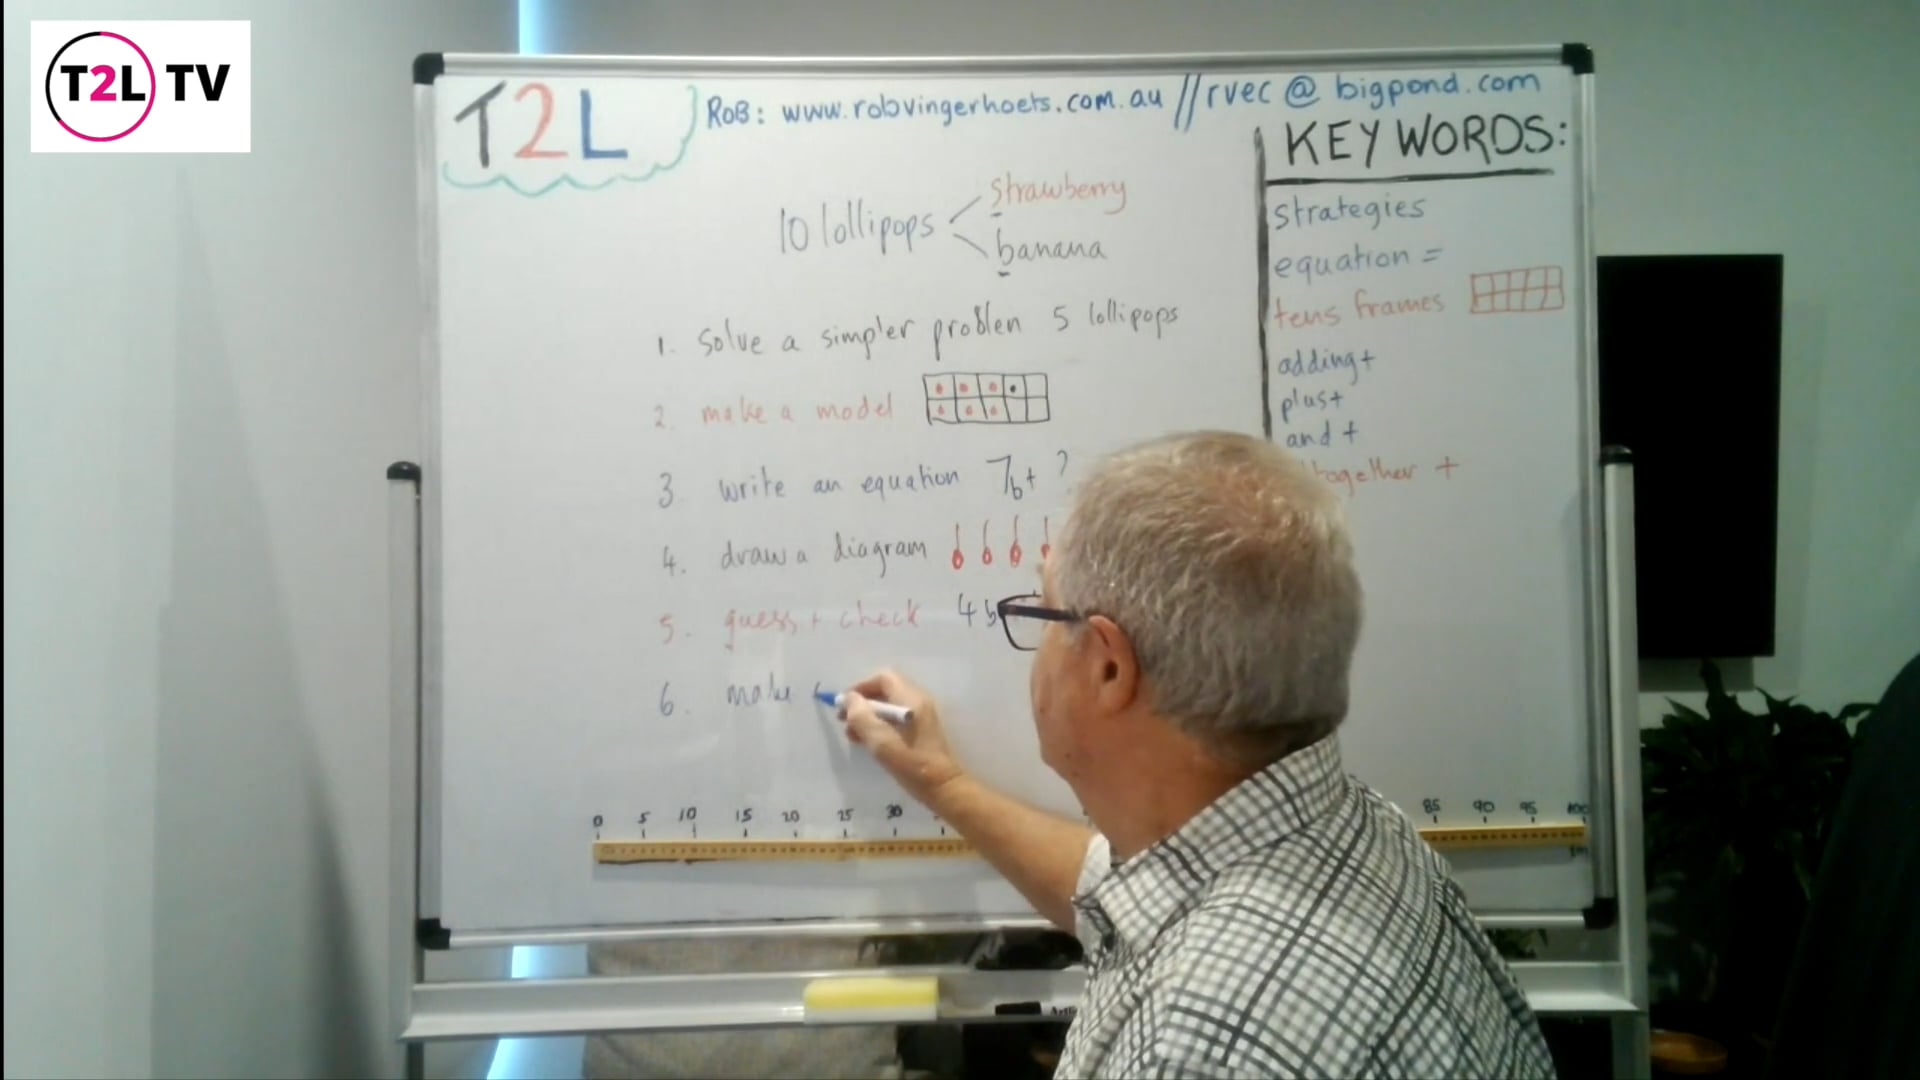 T2L TV
T2L
RoB: www.robvingerhoets.com.au // rvec @ bigpond.com
KEY WORDS:
10 lollipops
strawberry
banana
1. solve a simpler problem 5 lollipops
2. make a model
3. write an equation 7b + ?
4. draw a diagram
5. guess + check 4 b
6. make
strategies
equation =
tens frames
adding +
plus +
and +
together +
0 5 10 15 20 25 30 85 90 95 100